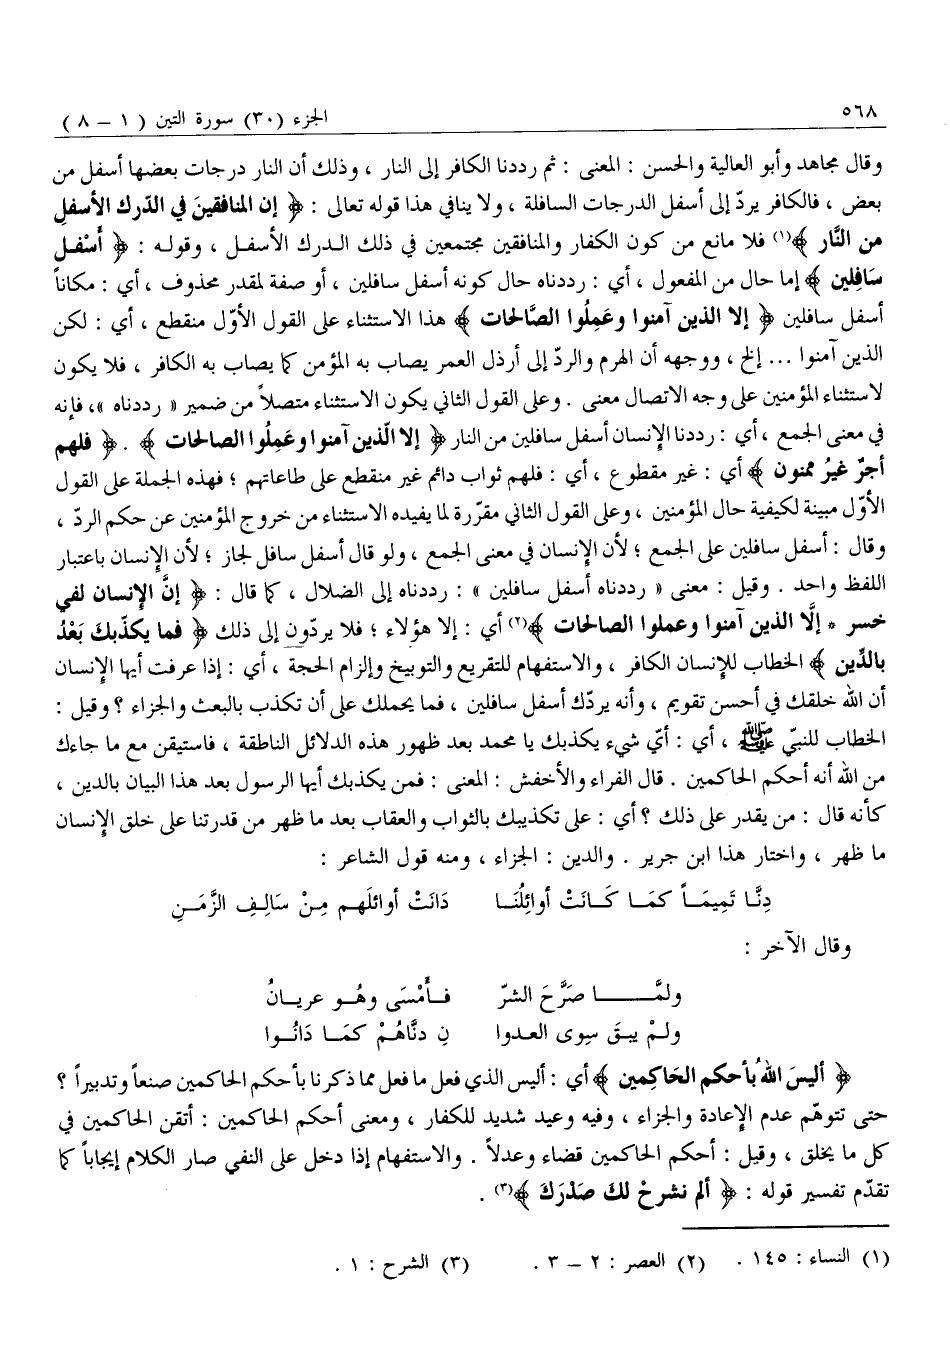 ٥٦٨ الجزء (٣٠) سورة التين ( ١ – ٨ )
وقال مجاهد وأبو العالية والحسن : المعنى : ثم رددنا الكافر إلى النار ، وذلك أن النار درجات بعضها أسفل من
بعض ، فالكافر يردّ إلى أسفل الدرجات السافلة ، ولا ينافي هذا قوله تعالى : ﴿ إن المنافقينَ في الدّرك الأسفلِ
من النَّار ﴾(١) فلا مانع من كون الكفار والمنافقين مجتمعين في ذلك الدرك الأسفل ، وقوله : ﴿ أَسْفل
سَافِلين ﴾ إما حال من المفعول ، أي : رددناه حال كونه أسفل سافلين ، أو صفة لمقدر محذوف ، أي : مكاناً
أسفل سافلين ﴿ إلا الذين آمنوا وعَمِلُوا الصَّالحات ﴾ هذا الاستثناء على القول الأوّل منقطع ، أي : لكن
الذين آمنوا ... إلخ ، ووجهه أن الهرم والردّ إلى أرذل العمر يصاب به المؤمن كما يصاب به الكافر ، فلا يكون
لاستثناء المؤمنين على وجه الاتصال معنى . وعلى القول الثاني يكون الاستثناء متصلاً من ضمير « رددناه »، فإنه
في معنى الجمع ، أي : رددنا الإنسان أسفل سافلين من النار ﴿ إلا الّذين آمنوا وعَمِلُوا الصالحات ﴾ . ﴿ فلهم
أجرٌ غيرُ ممنون ﴾ أي : غير مقطوع ، أي : فلهم ثواب دائم غير منقطع على طاعاتهم ؛ فهذه الجملة على القول
الأوّل مبينة لكيفية حال المؤمنين ، وعلى القول الثاني مقرّرة لما يفيده الاستثناء من خروج المؤمنين عن حكم الردّ ،
وقال : أسفل سافلين على الجمع ؛ لأن الإنسان في معنى الجمع ، ولو قال أسفل سافل لجاز ؛ لأن الإنسان باعتبار
اللفظ واحد . وقيل : معنى « رددناه أسفل سافلين » : رددناه إلى الضلال ، كما قال : ﴿ إنَّ الإنسان لفي
خسر * إلَّا الذين آمنوا وعملوا الصالحات ﴾(٢) أي : إلا هؤلاء ؛ فلا يردّون إلى ذلك ﴿ فما يكذّبكَ بَعْدُ
بالدِّين ﴾ الخطاب للإنسان الكافر ، والاستفهام للتقريع والتوبيخ وإلزام الحجة ، أي : إذا عرفت أيها الإنسان
أن الله خلقك في أحسن تقويم ، وأنه يردّك أسفل سافلين ، فما يحملك على أن تكذب بالبعث والجزاء ؟ وقيل :
الخطاب للنبيّ ﷺ ، أي : أيّ شيء يكذبك يا محمد بعد ظهور هذه الدلائل الناطقة ، فاستيقن مع ما جاءك
من الله أنه أحكم الحاكمين . قال الفراء والأخفش : المعنى : فمن يكذبك أيها الرسول بعد هذا البيان بالدين ،
كأنه قال : من يقدر على ذلك ؟ أي : على تكذيبك بالثواب والعقاب بعد ما ظهر من قدرتنا على خلق الإنسان
ما ظهر ، واختار هذا ابن جرير . والدين : الجزاء ، ومنه قول الشاعر :
دِنَّا تَمِيمَاً كمَا كَانَتْ أوائِلُنَا دَانَتْ أوائلَهم مِنْ سَالِفِ الزَّمَنِ
وقال الآخر :
ولمَّا صَرَّحَ الشرّ فأَمْسَى وهُو عريانُ
ولمْ يبقَ سِوى العدوا نِ دنَّاهُمْ كمَا دَانُوا
﴿ أليسَ اللهُ بأحكم الحَاكِمين ﴾ أي : أليس الذي فعل ما فعل مما ذكرنا بأحكم الحاكمين صنعاً وتدبيراً ؟
حتى تتوهّم عدم الإعادة والجزاء ، وفيه وعيد شديد للكفار ، ومعنى أحكم الحاكمين : أتقن الحاكمين في
كل ما يخلق ، وقيل : أحكم الحاكمين قضاء وعدلاً . والاستفهام إذا دخل على النفي صار الكلام إيجاباً كما
تقدّم تفسير قوله : ﴿ ألم نشرحْ لكَ صَدْرَكَ ﴾(٣) .
(١) النساء : ١٤٥ . (٢) العصر : ٢ – ٣ . (٣) الشرح : ١ .